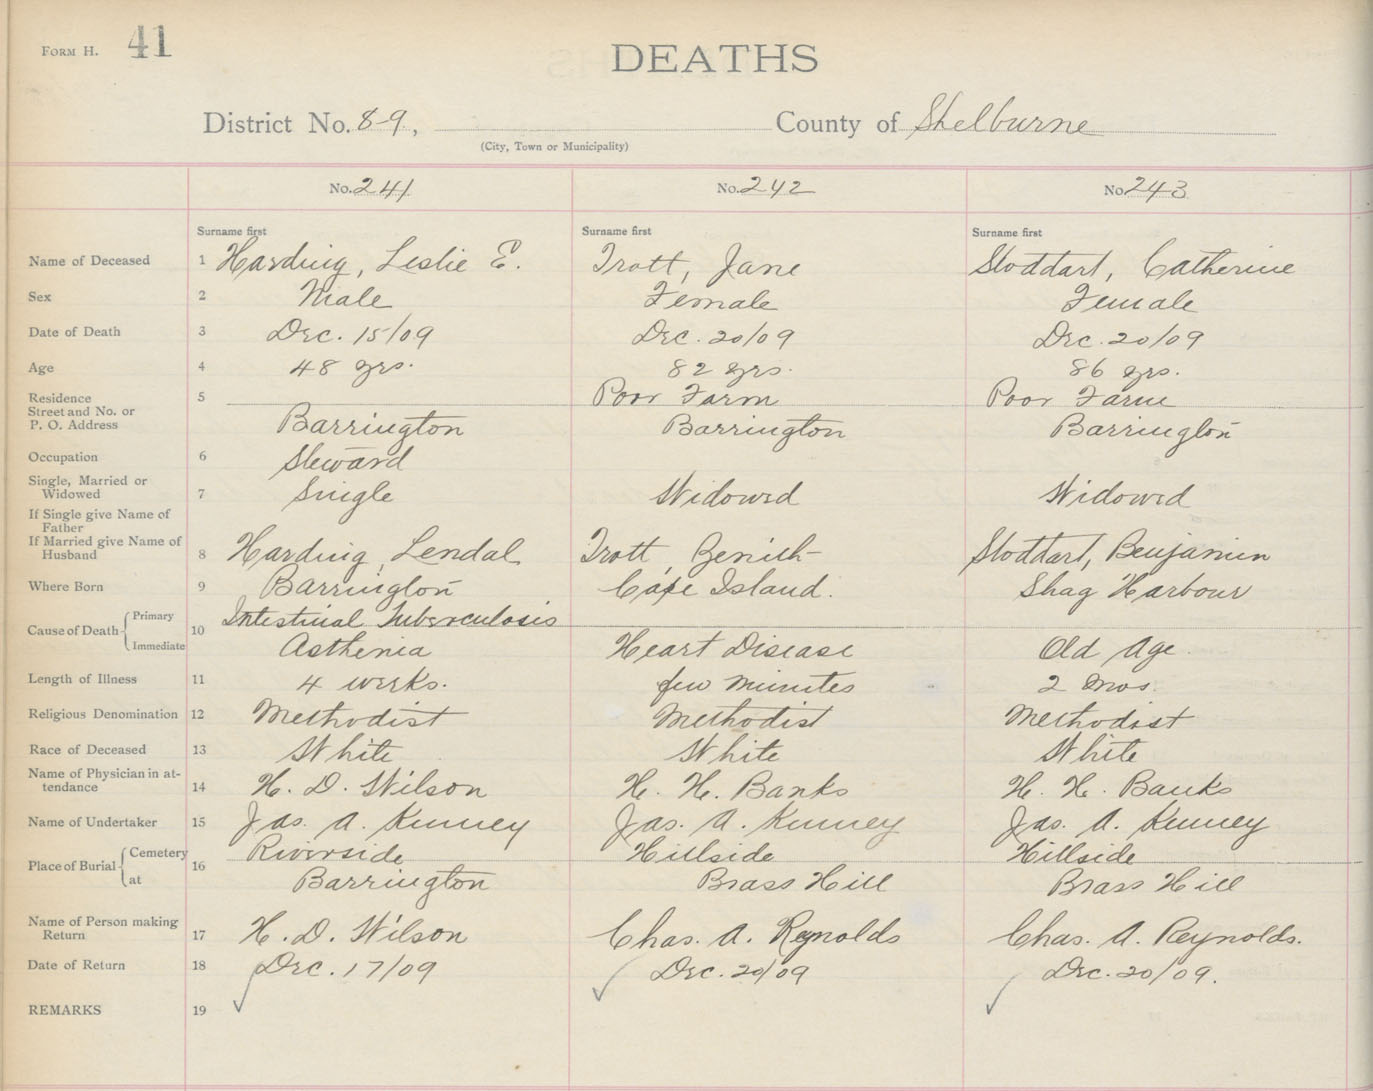 FORM H. 41
DEATHS
District No. 89, County of Shelburne
(City, Town or Municipality)
No. 241 No. 242 No. 243
Surname first Surname first Surname first
Name of Deceased 1 Harding, Leslie E. Trott, Jane Stoddart, Catherine
Sex 2 Male Female Female
Date of Death 3 Dec. 15/09 Dec. 20/09 Dec. 20/09
Age 4 48 yrs. 82 yrs. 86 yrs.
Residence 5 Poor Farm Poor Farm
Street and No. or
P. O. Address Barrington Barrington Barrington
Occupation 6 Steward
Single, Married or
Widowed 7 Single Widowed Widowed
If Single give Name of
Father
If Married give Name of
Husband 8 Harding, Lendal Trott, Stoddart, Benjamin
Where Born 9 Barrington Cape Island. Shag Harbour
Cause of Death Primary 10 Intestinal Tuberculosis
Immediate Asthenia Heart Disease Old Age
Length of Illness 11 4 weeks. few minutes 2 mos.
Religious Denomination 12 Methodist Methodist Methodist
Race of Deceased 13 White White White
Name of Physician in at-
tendance 14 H. D. Wilson H. H. Banks H. H. Banks
Name of Undertaker 15 Jas. A. Kenney Jas. A. Kenney Jas. A. Kenney
Place of Burial Cemetery 16 Riverside Hillside Hillside
at Barrington Brass Hill Brass Hill
Name of Person making
Return 17 H. D. Wilson Chas. A. Reynolds Chas. A. Reynolds.
Date of Return 18 Dec. 17/09 Dec. 20/09 Dec. 20/09.
REMARKS 19